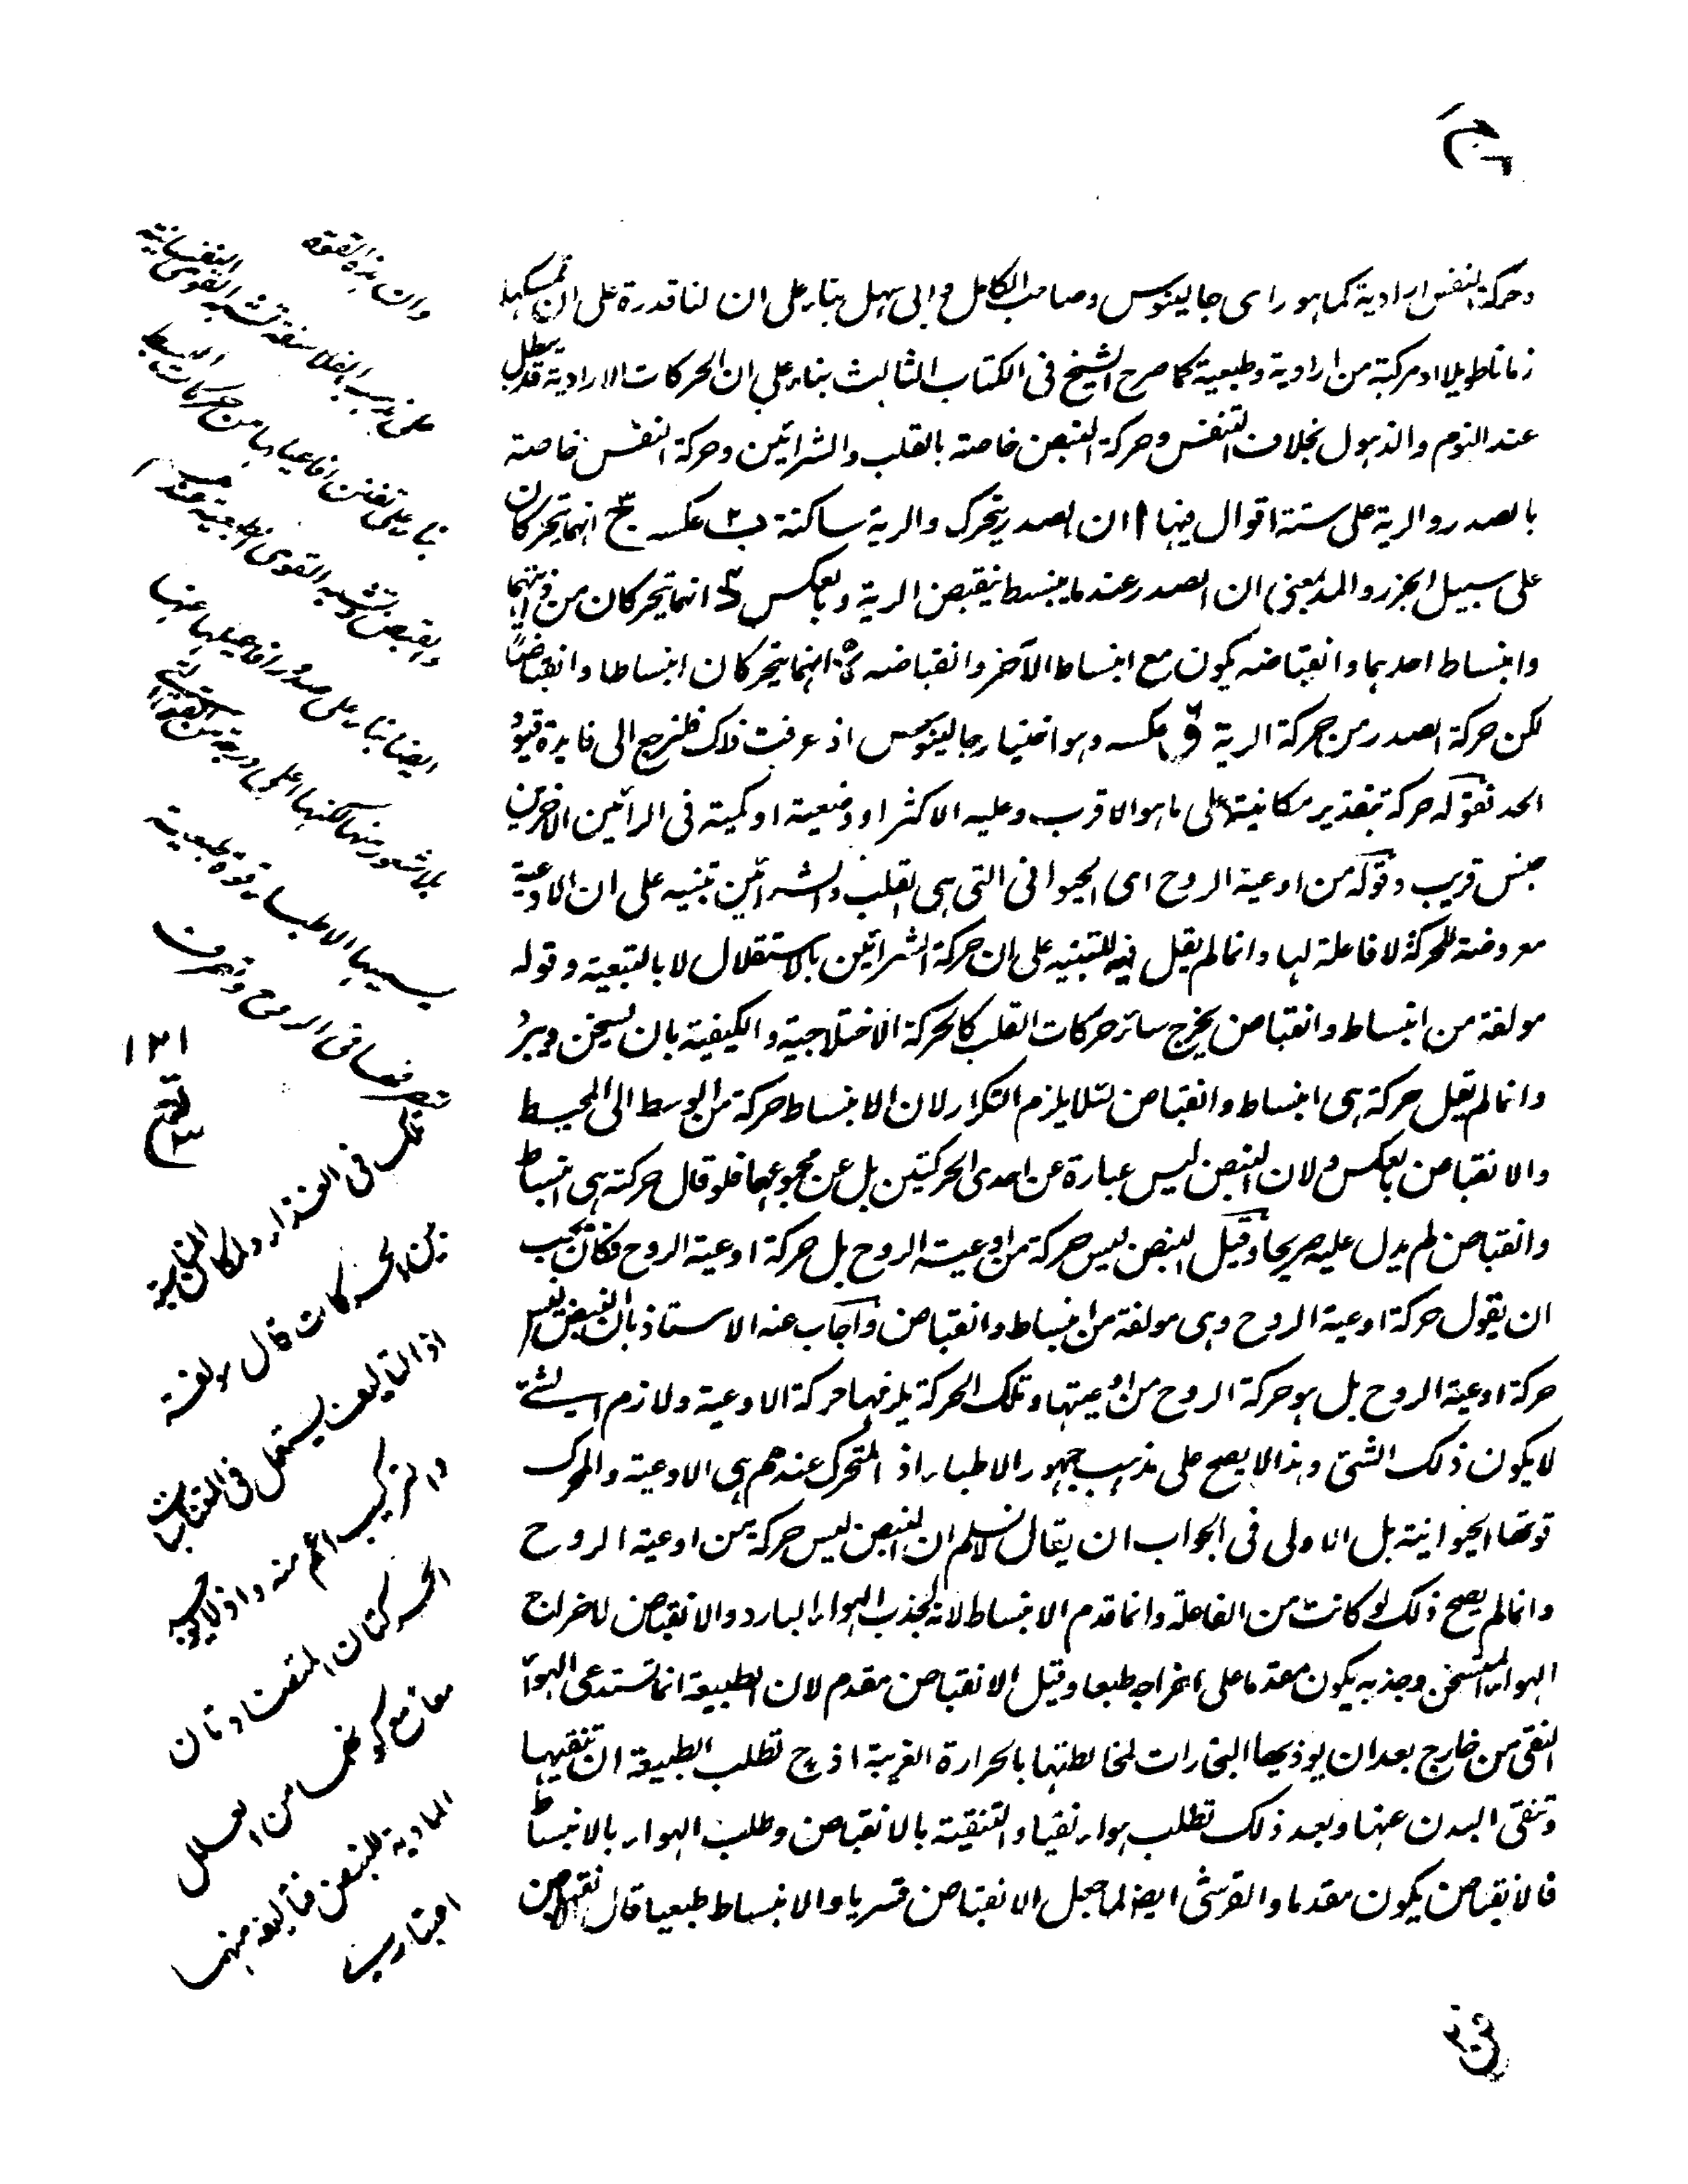 وحركة التنفس ارادية كما هو راى جالينوس وصاحب الكامل و ابى سهل بناء على ان لنا قدرة على ان نمسكها
زمانا طويلا او مركبة من ارادية وطبعية كما صرح الشيخ فى الكتاب الثالث بناء على ان الحركات الارادية قد يبطل
عند النوم والذهول بخلاف التنفس وحركة النبض خاصة بالقلب والشرائين وحركة التنفس خاصة
بالصدر والرية على ستة اقوال فيها ا ان الصدر يتحرك والرية ساكنة ب عكسه ج انهما يتحركان
على سبيل الجزر والمد بمعنى ان الصدر عندما ينبسط ينقبض الرية وبالعكس د انهما يتحركان من ذاتيهما
وانبساط احدهما وانقباضه يكون مع انبساط الآخر وانقباضه ه انهما يتحركان انبساطا وانقباضا
لكن حركة الصدر من حركة الرية و عكسه وهو اختيار جالينوس اذ عرفت ذلك فلنرجع الى فايدة قيود
الحد فقوله حركة بتقدير مكانيتها على ما هو الاقرب وعليه الاكثر او وضعية او كمية فى الرائين الاخرين
جنس قريب وقوله من اوعية الروح اى الحيوانى التى هى القلب والشرائين تنبيه على ان الاوعية
معروضة للحركة لا فاعلة لها وانما لم يقل فيه للتنبيه على ان حركة الشرائين بالاستقلال لا بالتبعية وقوله
مولفة من انبساط وانقباض يخرج سائر حركات القلب كالحركة الاختلاجية والكيفية بان يسخن ويبرد
وانما لم يقل حركة هى انبساط وانقباض لئلا يلزم التكرار لان الانبساط حركة من الوسط الى المحيط
والانقباض بالعكس ولان النبض ليس عبارة عن احدى الحركتين بل عن مجموعهما فلو قال حركة هى انبساط
وانقباض لم يدل عليه صريحا وقيل النبض ليس حركة من اوعية الروح بل حركة اوعية الروح فكان يجب
ان يقول حركة اوعية الروح وهى مولفة من انبساط وانقباض واجاب عنه الاستاذ بان النبض ليس
حركة اوعية الروح بل هو حركة الروح من اوعيتها وتلك الحركة يلزمها حركة الاوعية ولازم الشئ
لا يكون ذلك الشئ وهذا لا يصح على مذهب جمهور الاطباء اذ المتحرك عندهم هى الاوعية والمحرك
قوتها الحيوانية بل الاولى فى الجواب ان يقال لا نسلم ان النبض ليس حركة من اوعية الروح
وانما لم يصح ذلك لو كانت من الفاعلة وانما قدم الانبساط لانه لجذب الهواء البارد والانقباض لاخراج
الهواء المتسخن وجذبه يكون مقدما على اخراجه طبعا وقيل الانقباض مقدم لان الطبيعة انما تستدعى الهواء
النقى من خارج بعد ان يوذيها البخارات لمخالطتها بالحرارة الغريبة اذ ح تطلب الطبيعة ان تنقيها
وتنقى البدن عنها وبعد ذلك تطلب هواء نقيا والتنقية بالانقباض وطلب الهواء بالانبساط
فالانقباض يكون مقدما والقرشى ايضا لما جعل الانقباض قسريا والانبساط طبعيا قال
وان هذه القوة
على مذهب الفلاسفة تشبه القوى النفسانية
بناء على تفنن افاعيلها من حركات البسط
والقبض وتشبه القوى الطبعية عندهم
ايضا بناء على صدور افاعيلها عنها
بلا شعور منها لكنها اعلى درجة من القوة التى
يسميها الاطباء قوة طبعية
تصرفها فى الروح وتصرف
تلك فى الغذاء ولمكان المغايرة
بين الحركات قال مولفة
اذ التاليف يستعمل فى المتناسبات
والتركيب اعم منه واذ لا يوجد
الحركتان المتضادتان
معا مع كونهما من العلل
المادية للنبض فتاليفه منهما
اعتبارى
١٢١